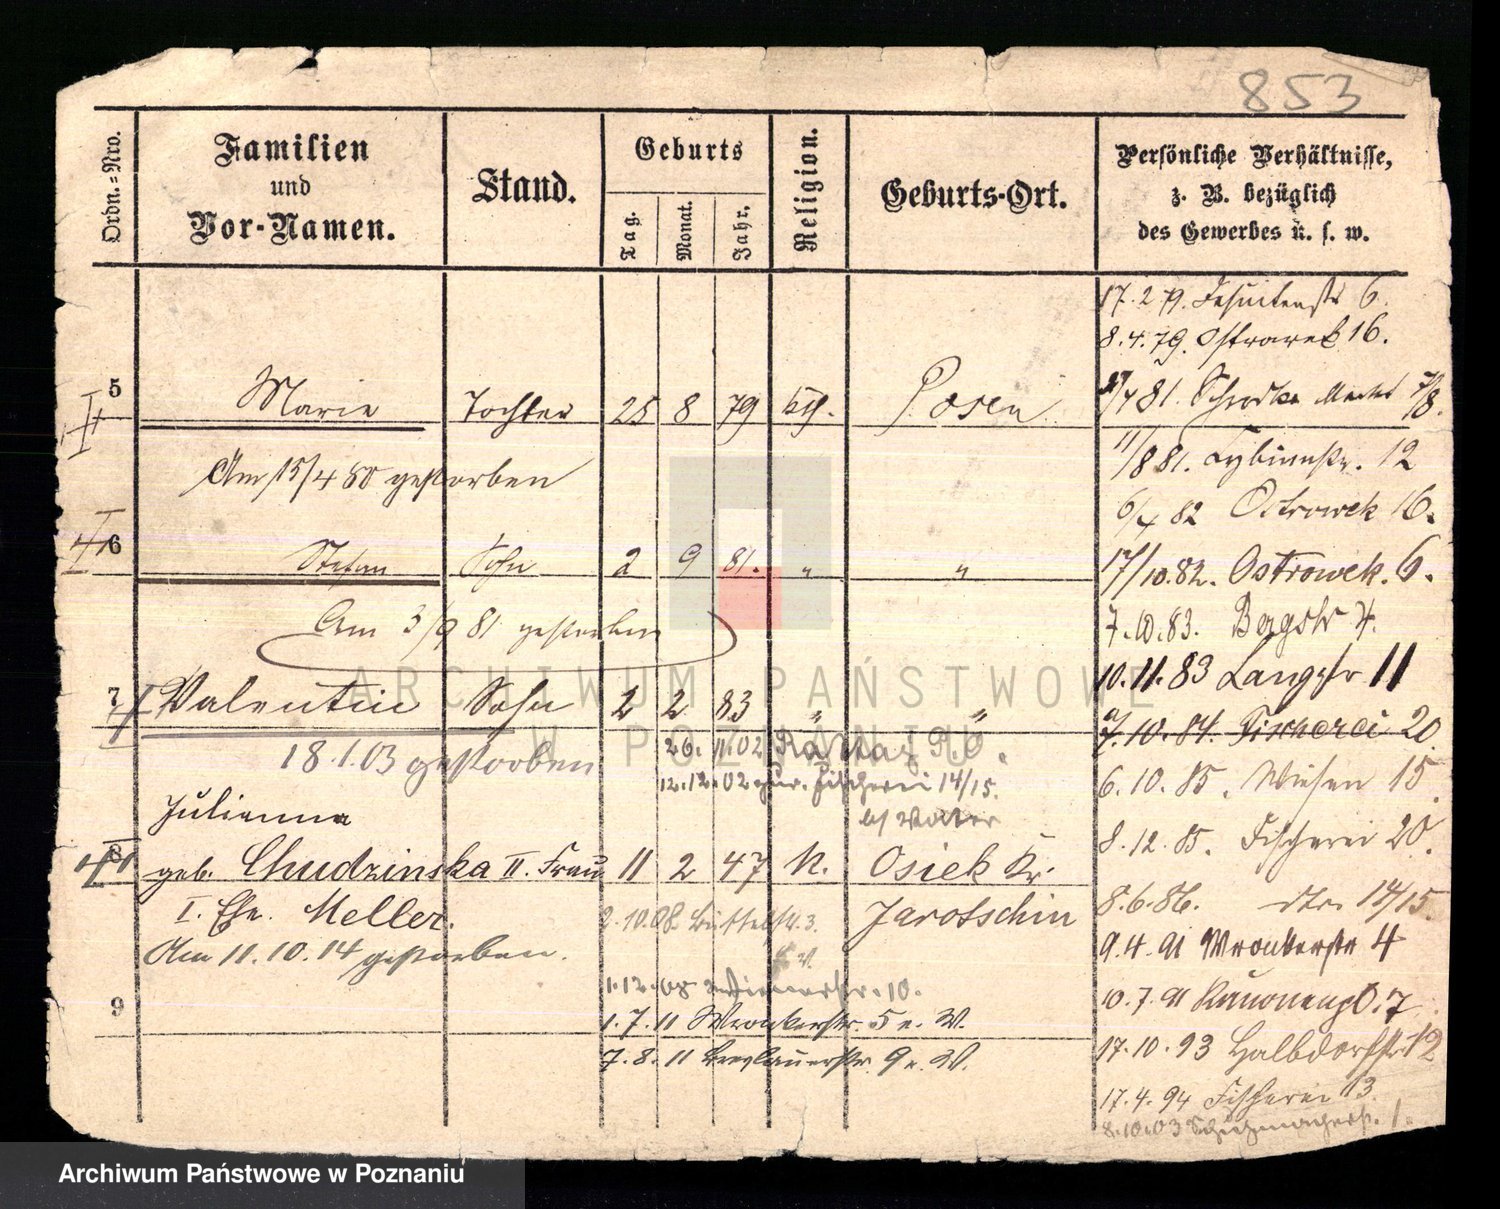 853
Ordn.-Nro.
Familien
und
Vor-Namen.
Stand.
Geburts
Tag.
Monat.
Jahr.
Religion.
Geburts-Ort.
Persönliche Verhältnisse,
z. B. bezüglich
des Gewerbes u. s. w.
17.2.79. Jesuitenstr 6.
8.4.79. Ostrowek 16.
5 Marie Tochter 25 8 79 kth. Posen
/4 81. Schrodka Markt 7/8.
Am 15/4 80 gestorben
11/8 81. Lybinustr. 12
6/4 82 Ostrowek 16.
6 Stefan Sohn 2 9 81. " "
17/10.82. Ostrowek. 6.
Am 3/9 81 gestorben
7.10.83. Bergstr 4.
7 Valentin Sohn 2 2 83 " "
10.11.83 Langestr 11
7.10.84. Fischerei 20
18.1.03 gestorben
26.11.02
12.12.02 zur. Fischerei 14/15.
b/ Walter
6.10.85. Wiesen 15.
Julianna
8 geb. Chudzinska II. Frau 11 2 47 K. Osiek Kr.
8.12.85. Fischerei 20.
I. Ehe. Meller. Jarotschin
2.10.08. Büttelstr. 3.
8.6.86. dto 14/15.
Am 11.10.14 gestorben.
9.4.91 Wronkerstr 4
1.12.08 Wienerstr. 10.
9
10.7.91 Kanonenpl. 7
1.7.11 Wronkerstr. 5 e. W.
17.10.93 Halbdorfstr. 12
7.8.11 Breslauerstr. 9 e. W.
17.4.94 Fischerei 13.
8.10.03 Schuhmacherstr. 1.
ARCHIWUM PAŃSTWOWE
W POZNANIU
Archiwum Państwowe w Poznaniu